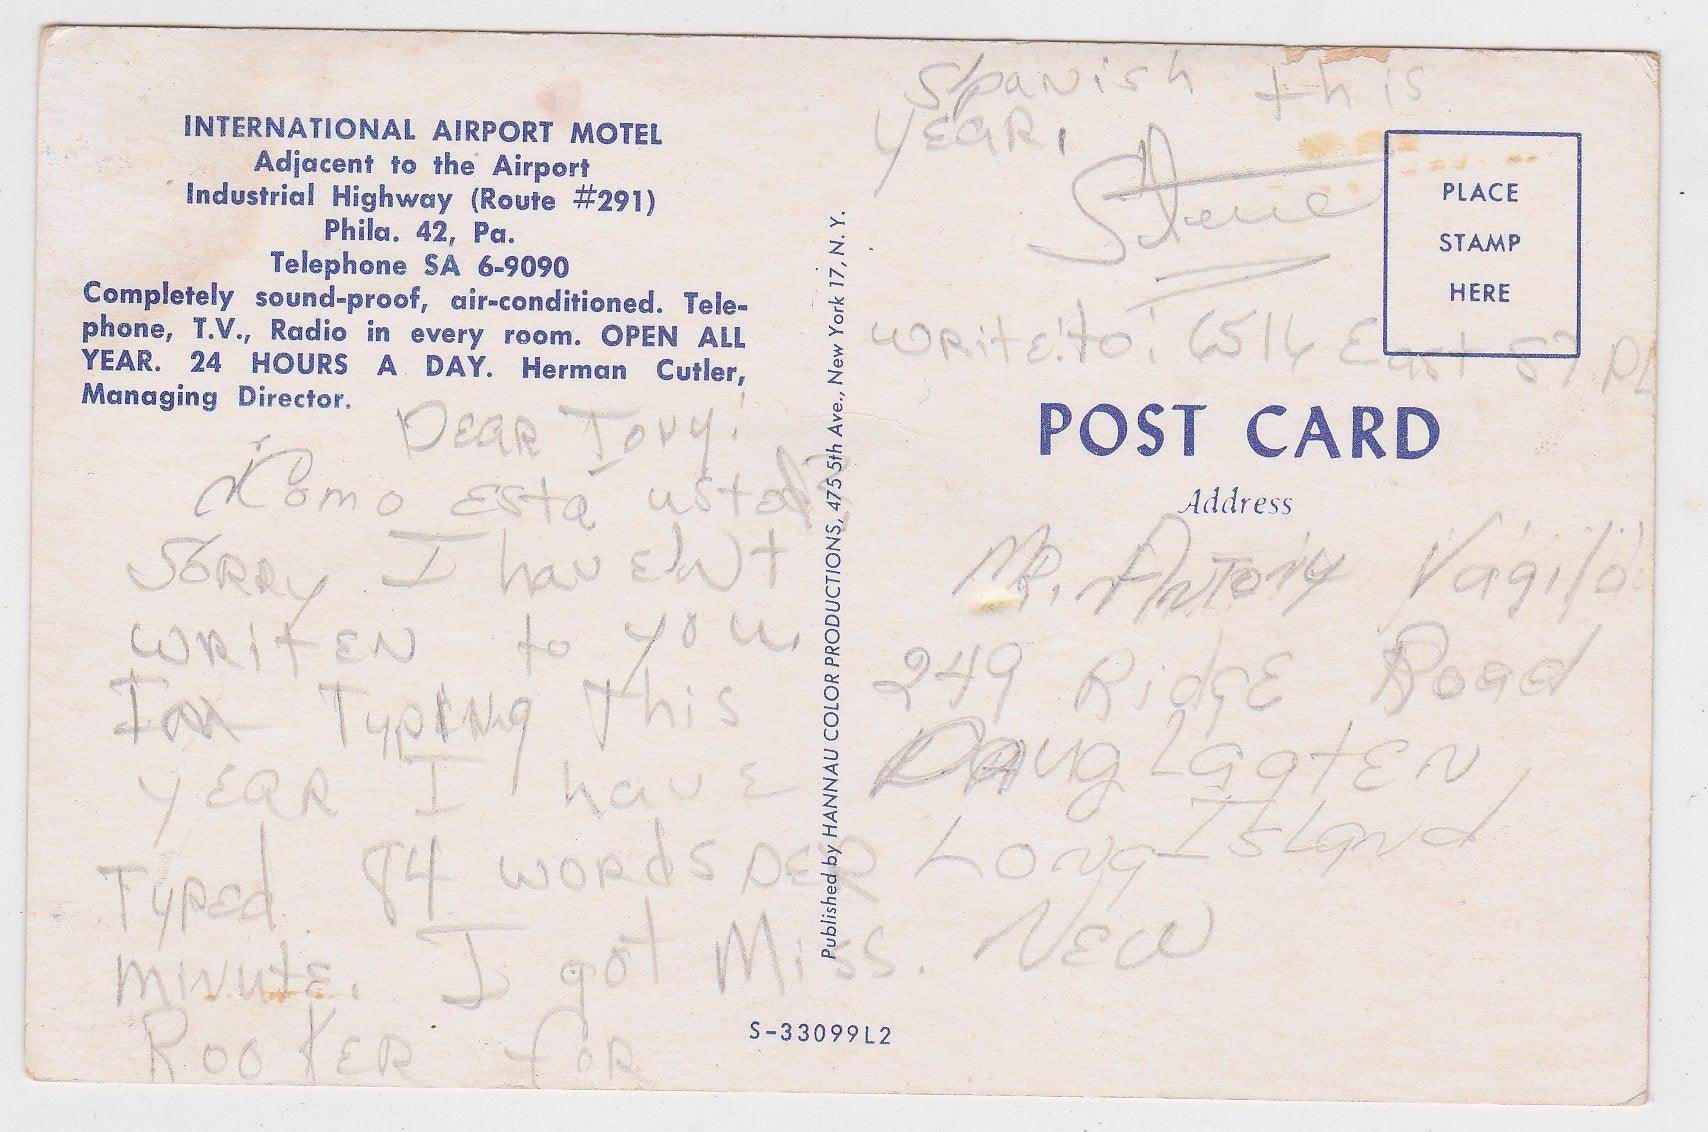 INTERNATIONAL AIRPORT MOTEL
Adjacent to the Airport
Industrial Highway (Route #291)
Phila. 42, Pa.
Telephone SA 6-9090
Completely sound-proof, air-conditioned. Tele-
phone, T.V., Radio in every room. OPEN ALL
YEAR. 24 HOURS A DAY. Herman Cutler,
Managing Director.
DEAR TONY:
Como Esta usted?
SORRY I havEn't
WRITEN to you.
I am TypENg This
YEAR I have
Typed 84 WORdS PER
MINUtE. I got Miss.
ROOKER for
Spanish this
YEAR,
Steve
WRitE to: 6516 East 57 PL
Published by HANNAU COLOR PRODUCTIONS, 475 5th Ave., New York 17, N. Y.
PLACE
STAMP
HERE
POST CARD
Address
MR. ANTONY
249 RidgE Road
DougLastEN,
Long-Island
NEW
S-33099L2